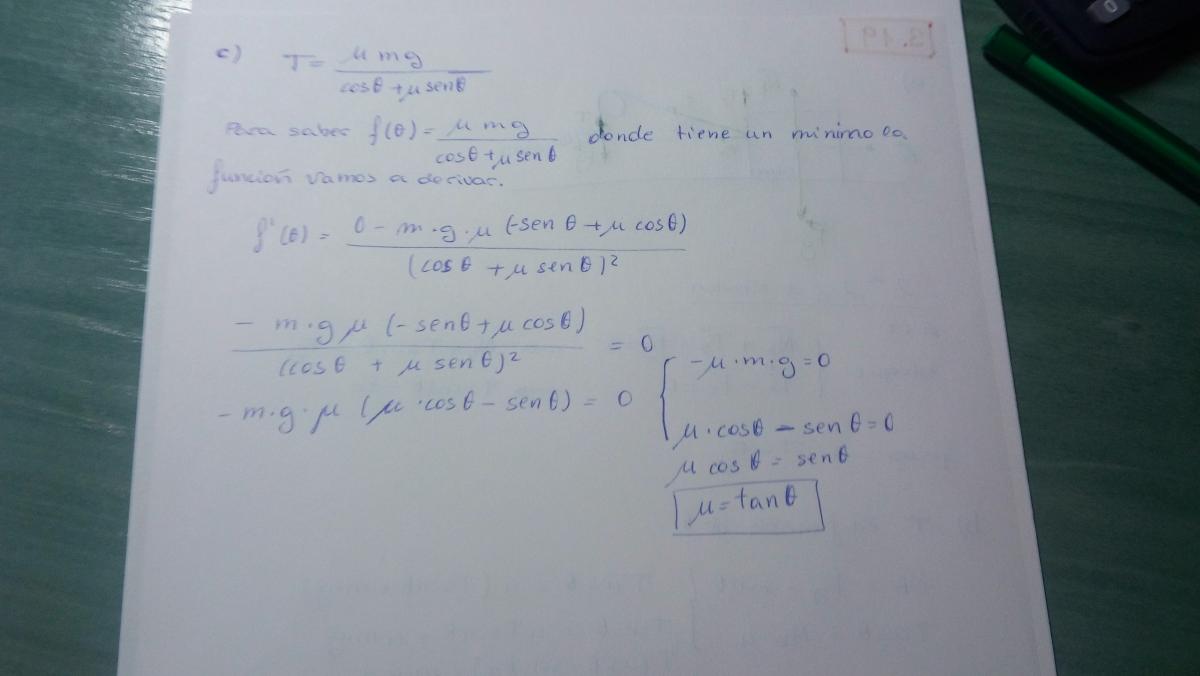 c) T = μ mg / cosθ + μ senθ
Para saber f(θ) = μ mg / cosθ + μ senθ donde tiene un minimo la
función vamos a derivar.
f'(θ) = 0 - m·g·μ (-senθ + μ cosθ) / (cosθ + μ senθ)²
- m·g μ (-senθ + μ cosθ) / (cosθ + μ senθ)² = 0
- m·g·μ (μ·cosθ - senθ) = 0 { -μ·m·g = 0
μ·cosθ - senθ = 0
μ cosθ = senθ
μ = tanθ
3.19